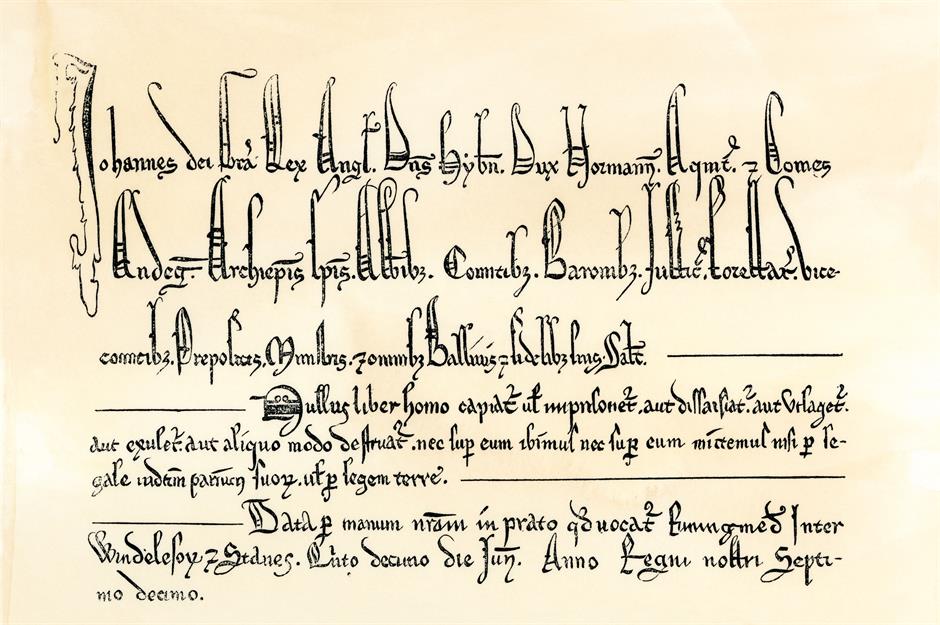 Johannes dei Gr̄a Rex Angl. Dn̄s Hyb̄n. Dux Normann̄. Aquit̄. ⁊ Comes
Andeḡ. Archiep̄is Ep̄is. Abb̄ibꝫ. Comitibꝫ. Baronibꝫ. Justic̄. Forestar̄. vice-
comitibꝫ. Prepositis. Ministris. ⁊ omnibꝫ Ballivis ⁊ fidelibꝫ suis. Sal̄t.
Nullus liber homo capiat᷑ ul̄ inprisonet᷑. aut dissaisiat᷑. aut Utlaget᷑.
aut exulet᷑. aut aliquo modo destruat᷑. nec sup̄ eum ibimus nec sup̄ eum mittemus nisi ꝑ le-
gale iudiciū parium suoꝝ. ul̄ ꝑ legem terre.
Data ꝑ manum nr̄am in prato qd̄ vocat᷑ Runingmed̄ Inter
Windelesoꝝ ⁊ Stanes. Quīto decimo die Jun̄. Anno Regni nostri Septi-
mo decimo.